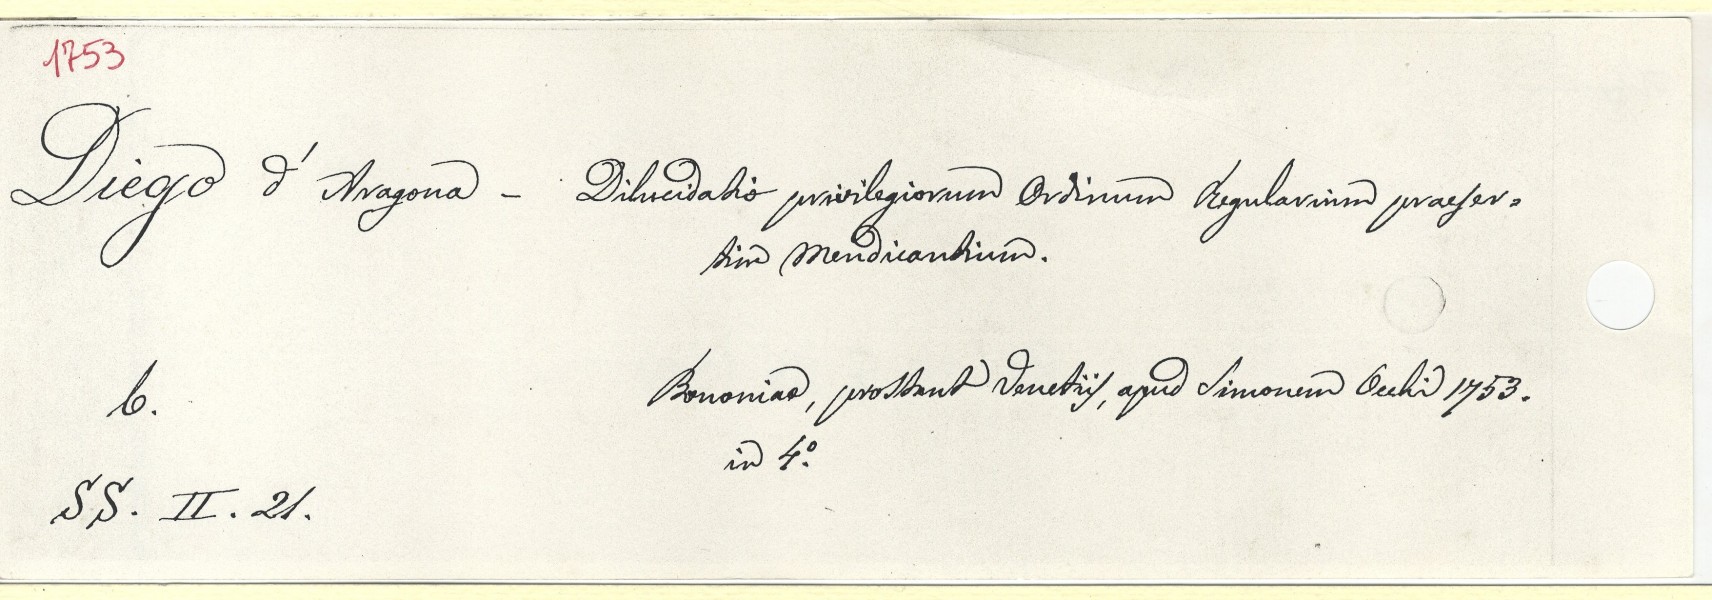 1753
Diego d' Aragona - Dilucidatio privilegiorum Ordinum Regularium praeser=
tim Mendicantium.
b. Bononiae, prostant Venetijs, apud Simonem Occhi 1753.
in 4°.
SS. II. 21.